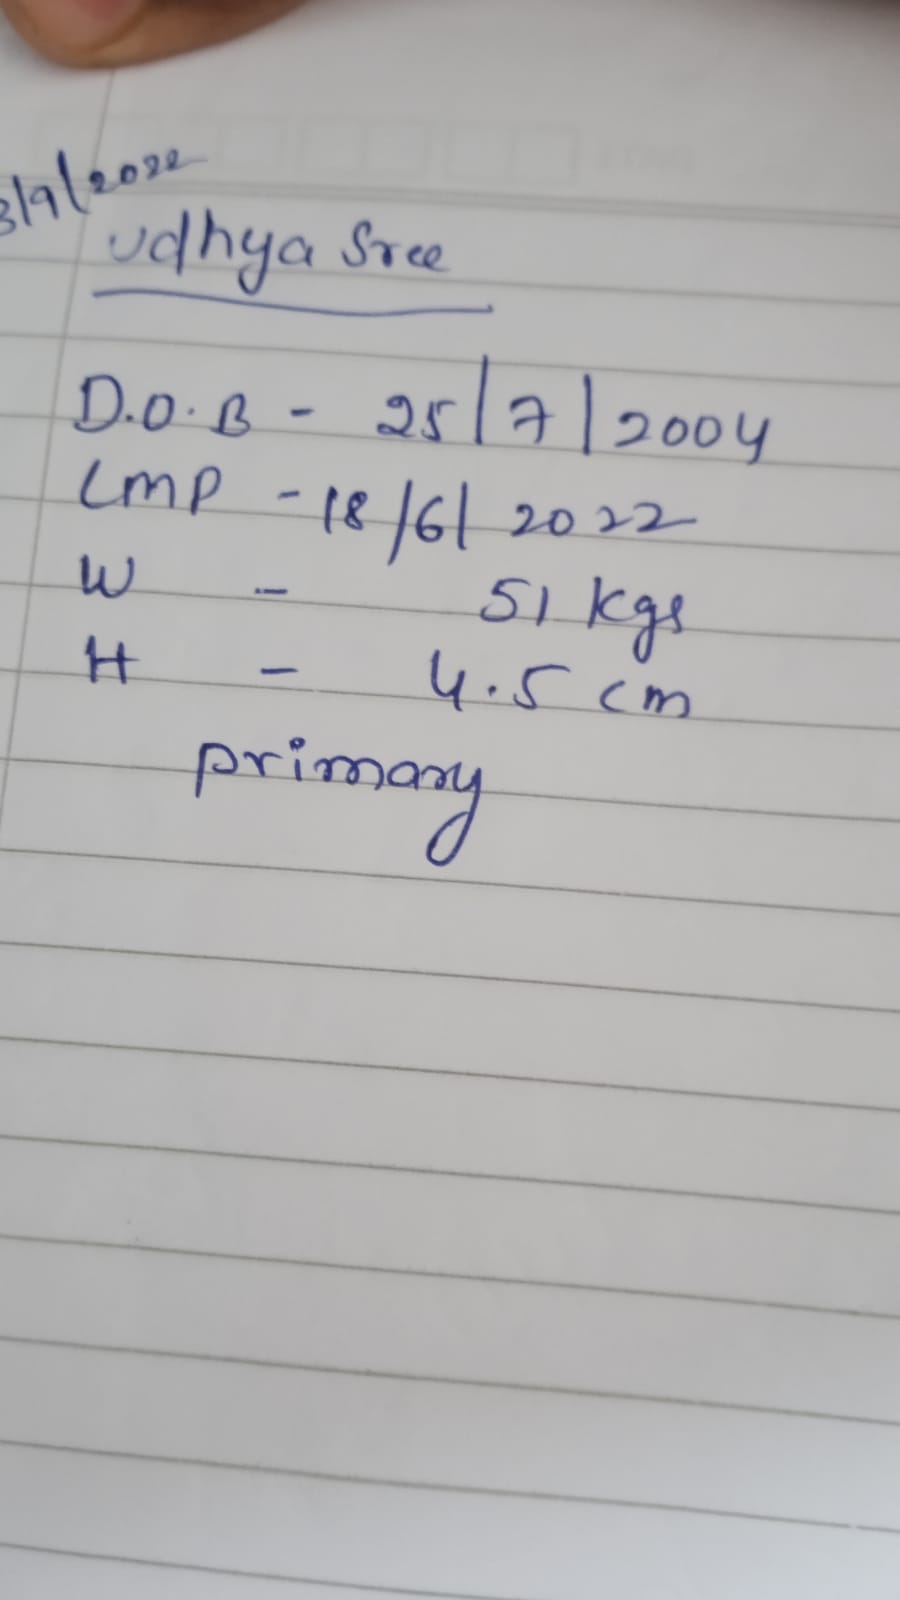 3/9/2022
Udhya Sree
D.O.B - 25/7/2004
LMP - 18/6/2022
W - 51 kgs
H - 4.5 cm
primary